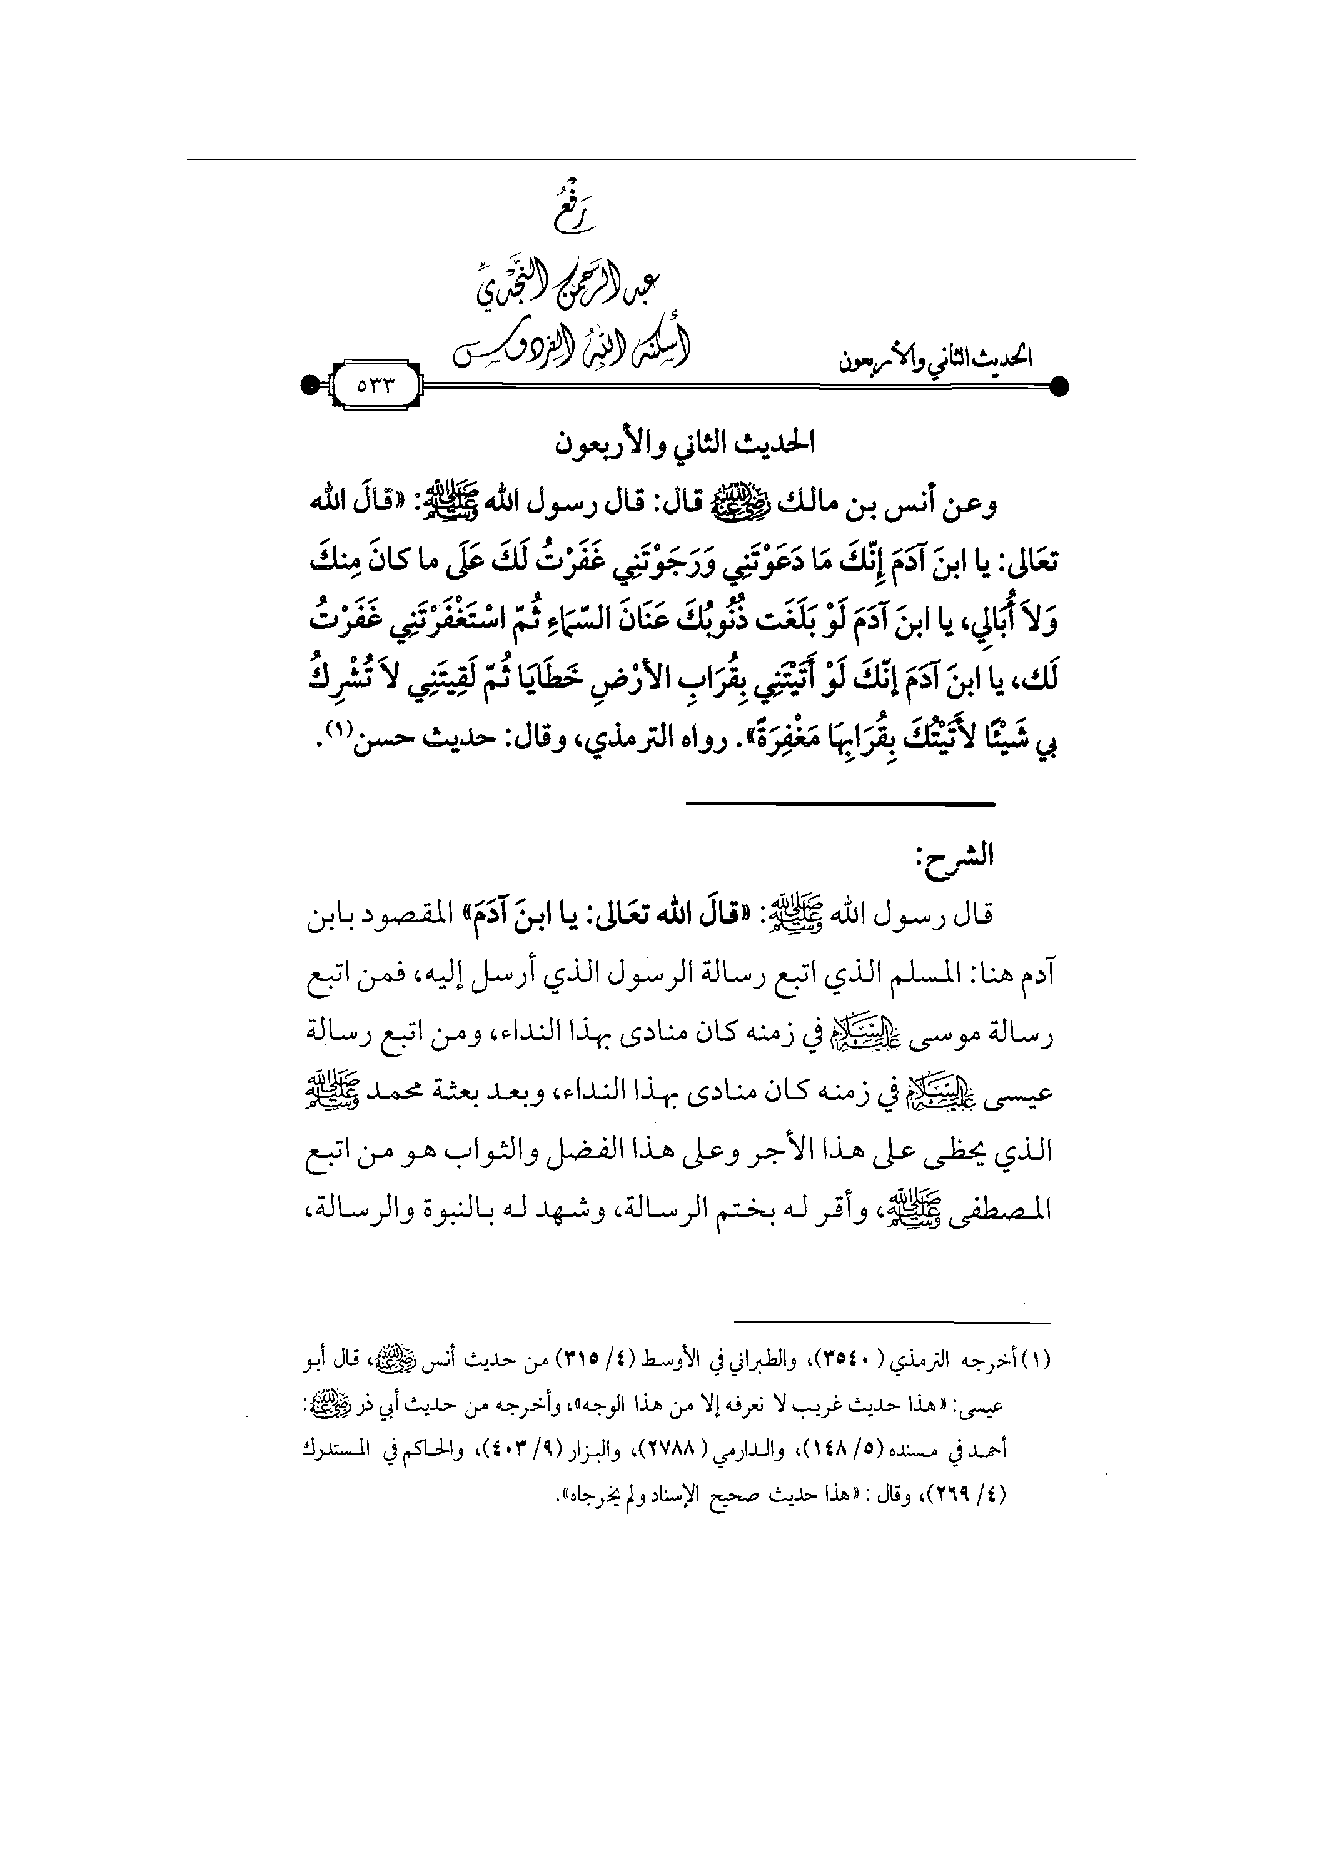 رَفْعُ
عبد الرحمن النجدي
أسكنه الله الفردوس
الحديث الثاني والأربعون
٥٣٣
الحديث الثاني والأربعون
وعن أنس بن مالك رضي الله عنه قال: قال رسول الله ﷺ: «قالَ الله
تعَالى: يا ابنَ آدَمَ إِنَّكَ مَا دَعَوْتَنِي وَرَجَوْتَنِي غَفَرْتُ لَكَ عَلَى ما كانَ مِنكَ
وَلاَ أُبَالِي، يا ابنَ آدَمَ لَوْ بَلَغَت ذُنُوبُكَ عَنَانَ السَّمَاءِ ثُمّ اسْتَغْفَرْتَنِي غَفَرْتُ
لَك، يا ابنَ آدَمَ إِنَّكَ لَوْ أَتَيْتَنِي بِقُرَابِ الأرْضِ خَطَايَا ثُمّ لَقِيتَنِي لاَ تُشْرِكُ
بي شَيْئًا لأَتَيْتُكَ بِقُرَابِهَا مَغْفِرَةً». رواه الترمذي، وقال: حديث حسن(١).
الشرح:
قال رسول الله ﷺ: «قالَ الله تعَالى: يا ابنَ آدَمَ» المقصود بابن
آدم هنا: المسلم الذي اتبع رسالة الرسول الذي أرسل إليه، فمن اتبع
رسالة موسى عليه السلام في زمنه كان منادى بهذا النداء، ومن اتبع رسالة
عيسى عليه السلام في زمنه كان منادى بهذا النداء، وبعد بعثة محمد ﷺ
الذي يحظى على هذا الأجر وعلى هذا الفضل والثواب هو من اتبع
المصطفى ﷺ، وأقر له بختم الرسالة، وشهد له بالنبوة والرسالة،
(١) أخرجه الترمذي (٣٥٤٠)، والطبراني في الأوسط (٤/ ٣١٥) من حديث أنس رضي الله عنه، قال أبو
عيسى: «هذا حديث غريب لا نعرفه إلا من هذا الوجه»، وأخرجه من حديث أبي ذر رضي الله عنه:
أحمد في مسنده (٥/ ١٤٨)، والدارمي (٢٧٨٨)، والبزار (٩/ ٤٠٣)، والحاكم في المستدرك
(٤/ ٢٦٩)، وقال: «هذا حديث صحيح الإسناد ولم يخرجاه».